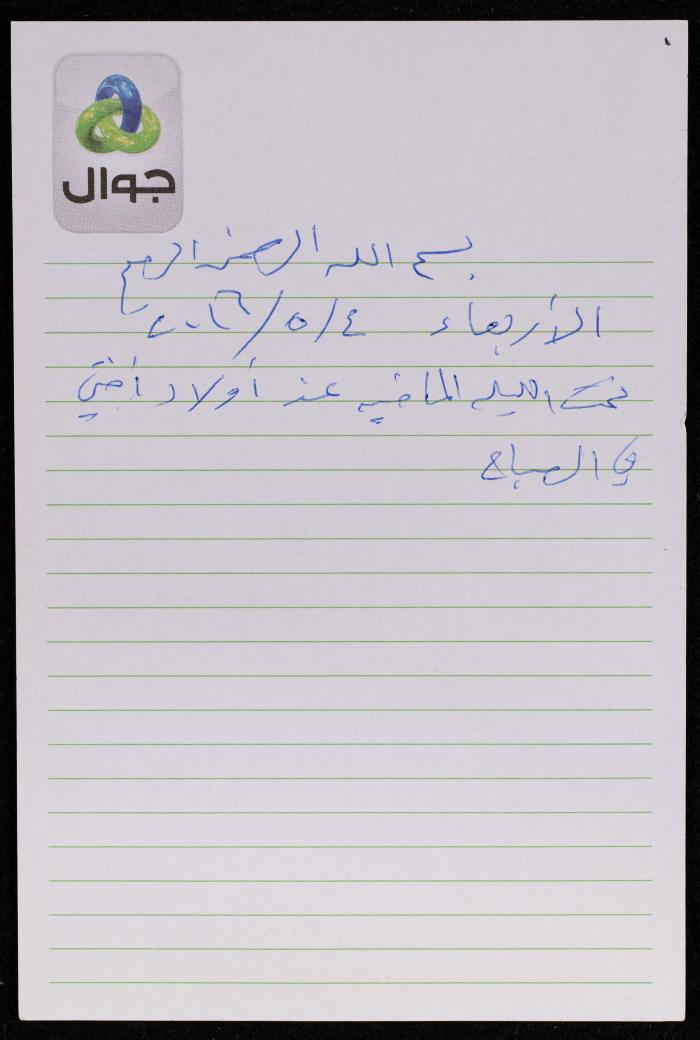 جوال
بسم الله الرحمن الرحيم
الأربعاء ٤/٥/٢٠١٦
نمت الليله الماضيه عند أولاد أختي
في الصباح